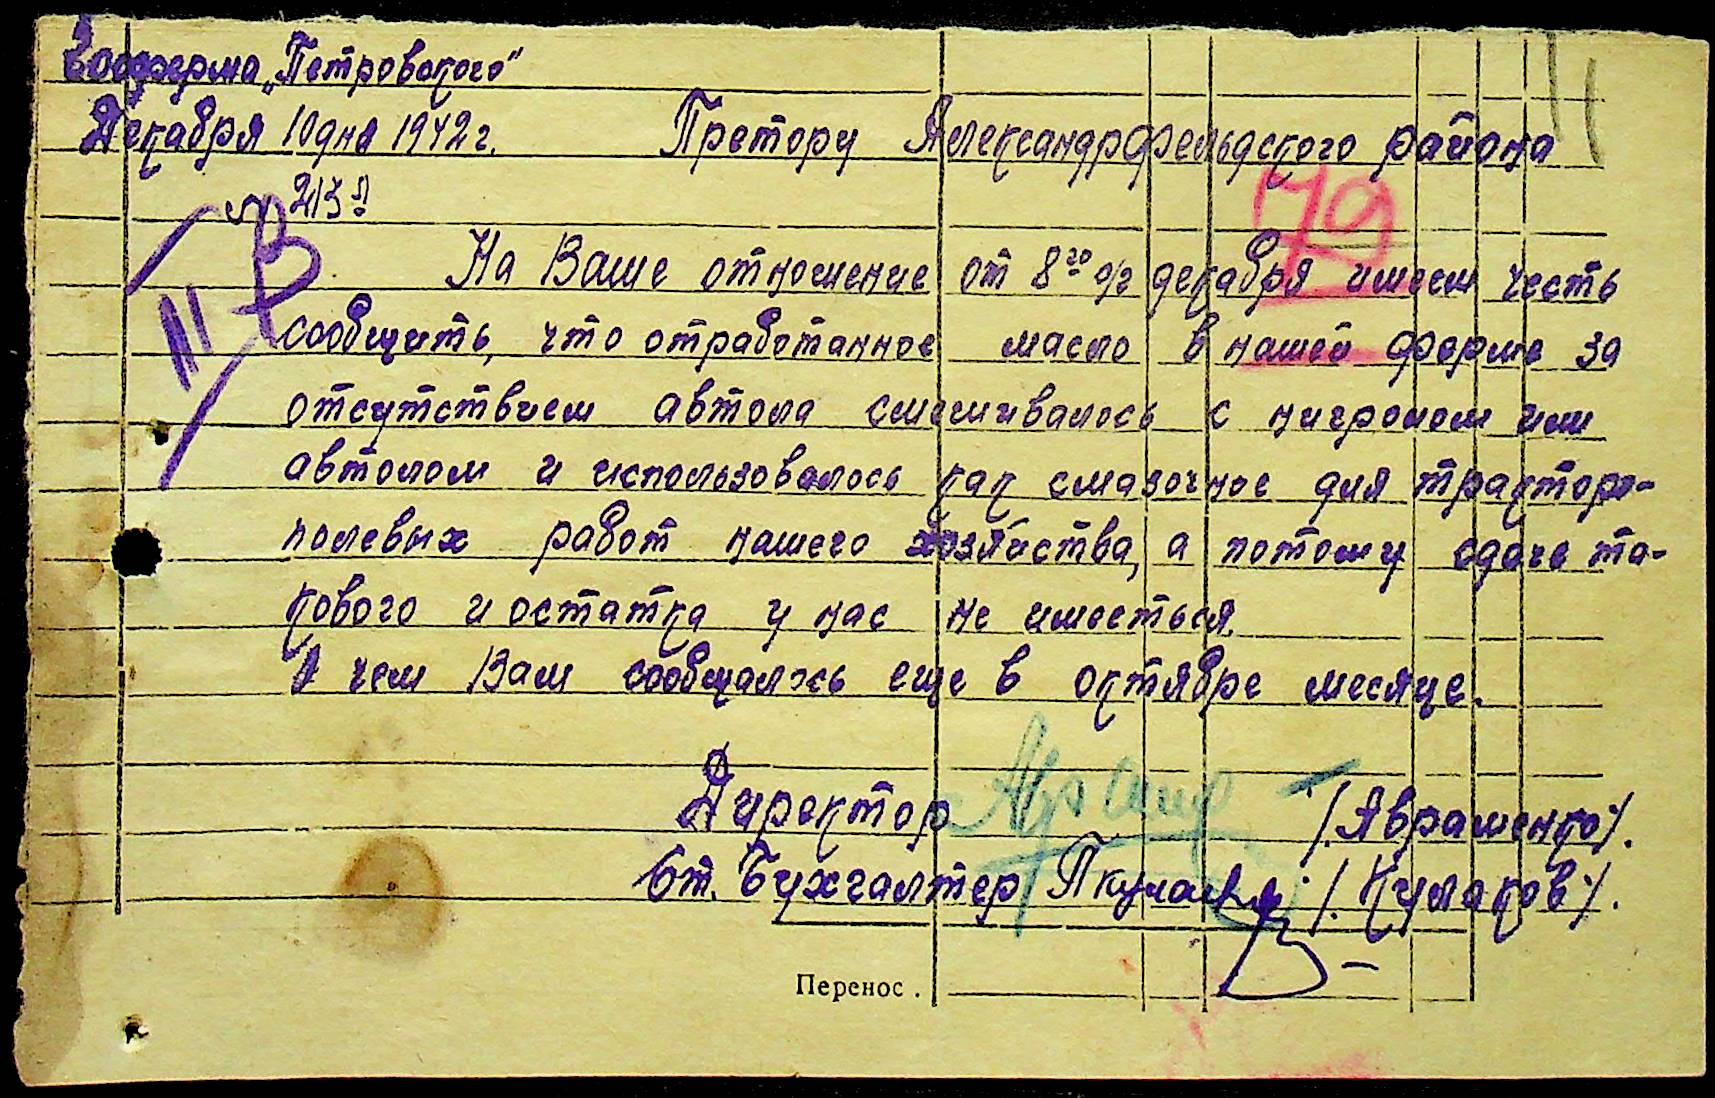 Госферма „Петровского"
Декабря 10 дня 1942 г. Претору Александрфельдского района
№ 213
79
На Ваше отношение от 8го с/г декабря имеем честь
сообщить, что отработанное масло в нашей ферме за
отсутствием автола смешивалось с нигролом или
автолом и использовалось как смазочное для тракторо-
полевых работ нашего хозяйства, а потому сдаче та-
кового и остатка у нас не имееться.
О чем Вам сообщалось еще в октябре месяце.
Директор /Авраменко/.
Ст. Бухгалтер /Кулаков/.
Перенос .